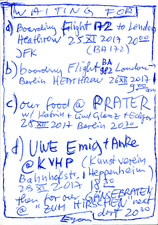 WAITING FOR
a) boarding Flight A2 to London
Heathrow 25 XII 2017 20:00
JFK (BA172)
b) boarding Flight BA 982 London
Berlin Heathrow 26 XII 2017
c) our food @ PRATER
w/ Katrin + Uwe Glanz + Edgar
26 XII 2017 Berlin 2030
d) UWE Emigt Anke
@ KVHP (Kunstverein
Bahnhofstr. 1 Heppenheim
28 XII 2017 18:30
then for our GÄNSEBRATEN
@ "ZUM HIRSCHEN" next
dorf 2030